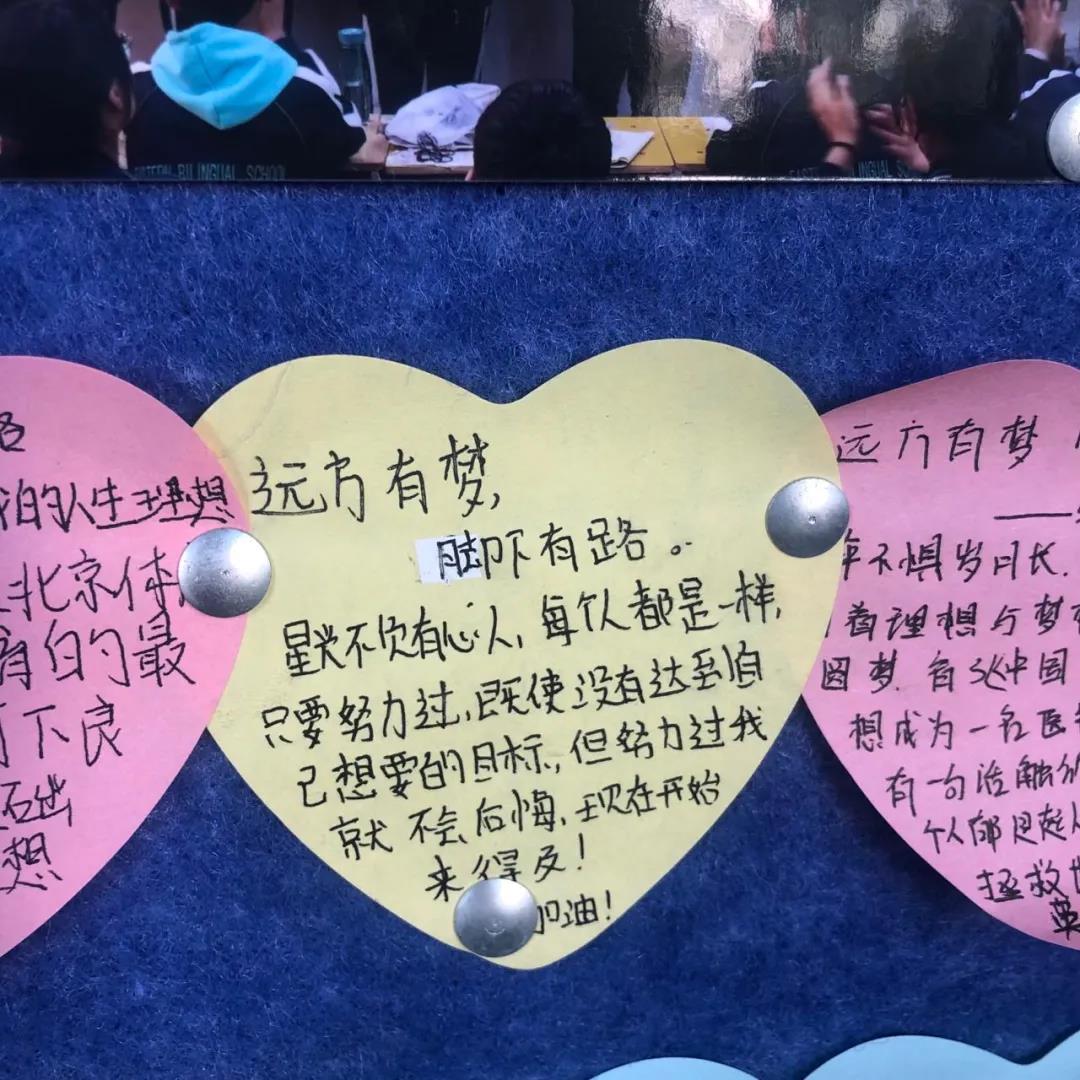 BILINGUAL SCHOOL
的人生理想
北京体
育的最
下良
础
想
远方有梦,
脚下有路。
星光不负有心人,每个人都是一样,
只要努力过,既使没有达到自
己想要的目标,但努力过我
就不会后悔,现在开始
来得及!
加油!
远方有梦
——
不惧岁月长.
着理想与梦
圆梦.自从中国
想成为一名医
有一句话触
个人都是
拯救
英